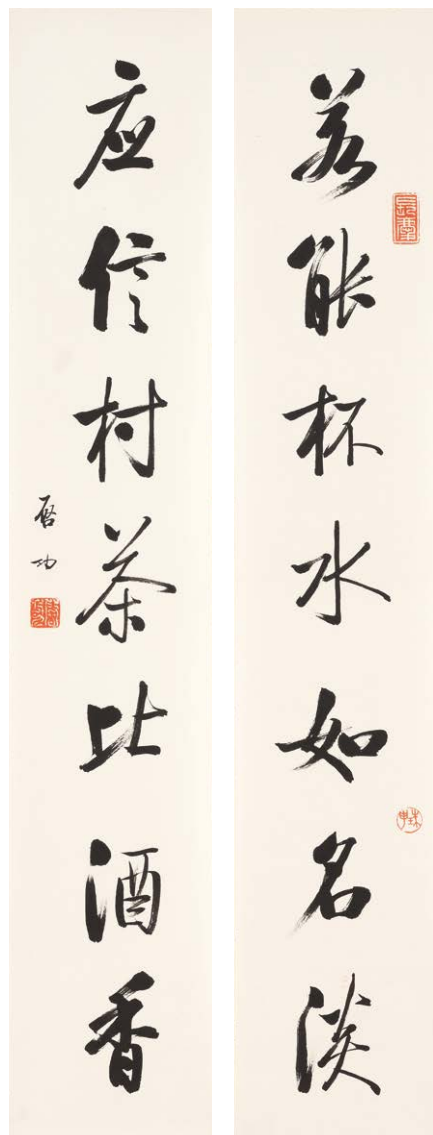 若能杯水如名淡
应信村茶比酒香
启功